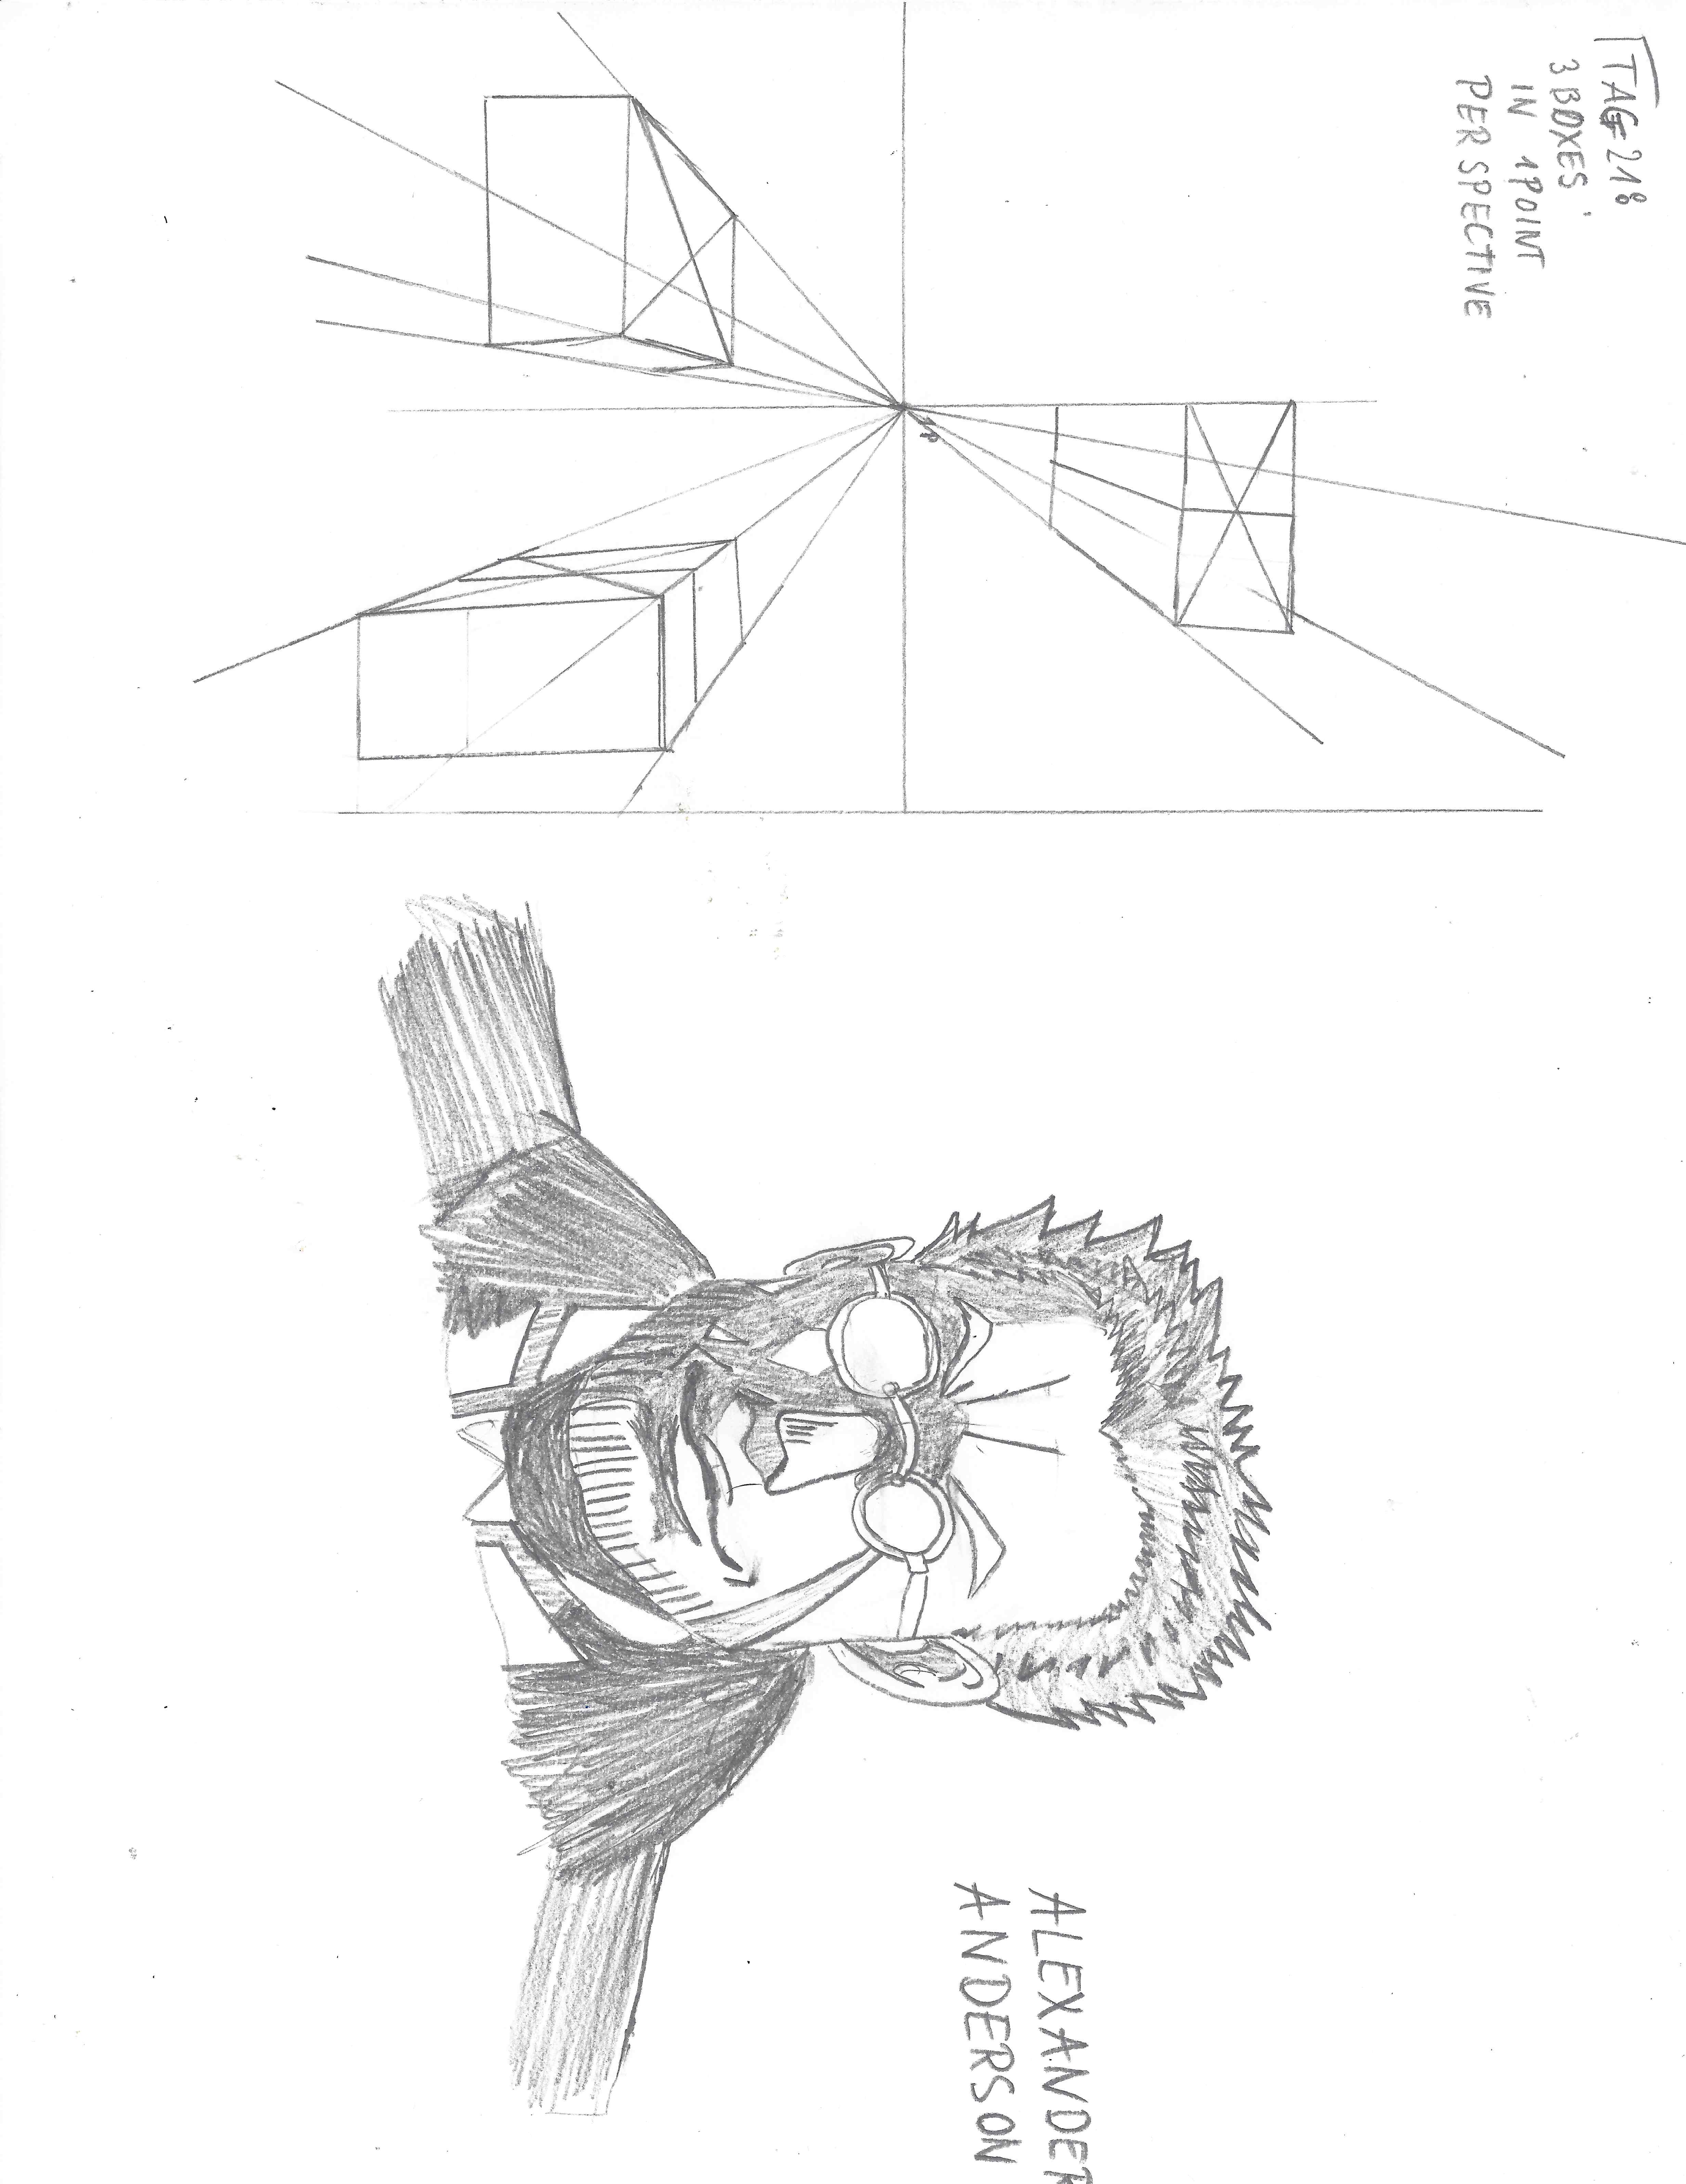 TAG 218
3 BOXES
IN 1 POINT
PERSPECTIVE
1P
ALEXANDER
ANDERSON